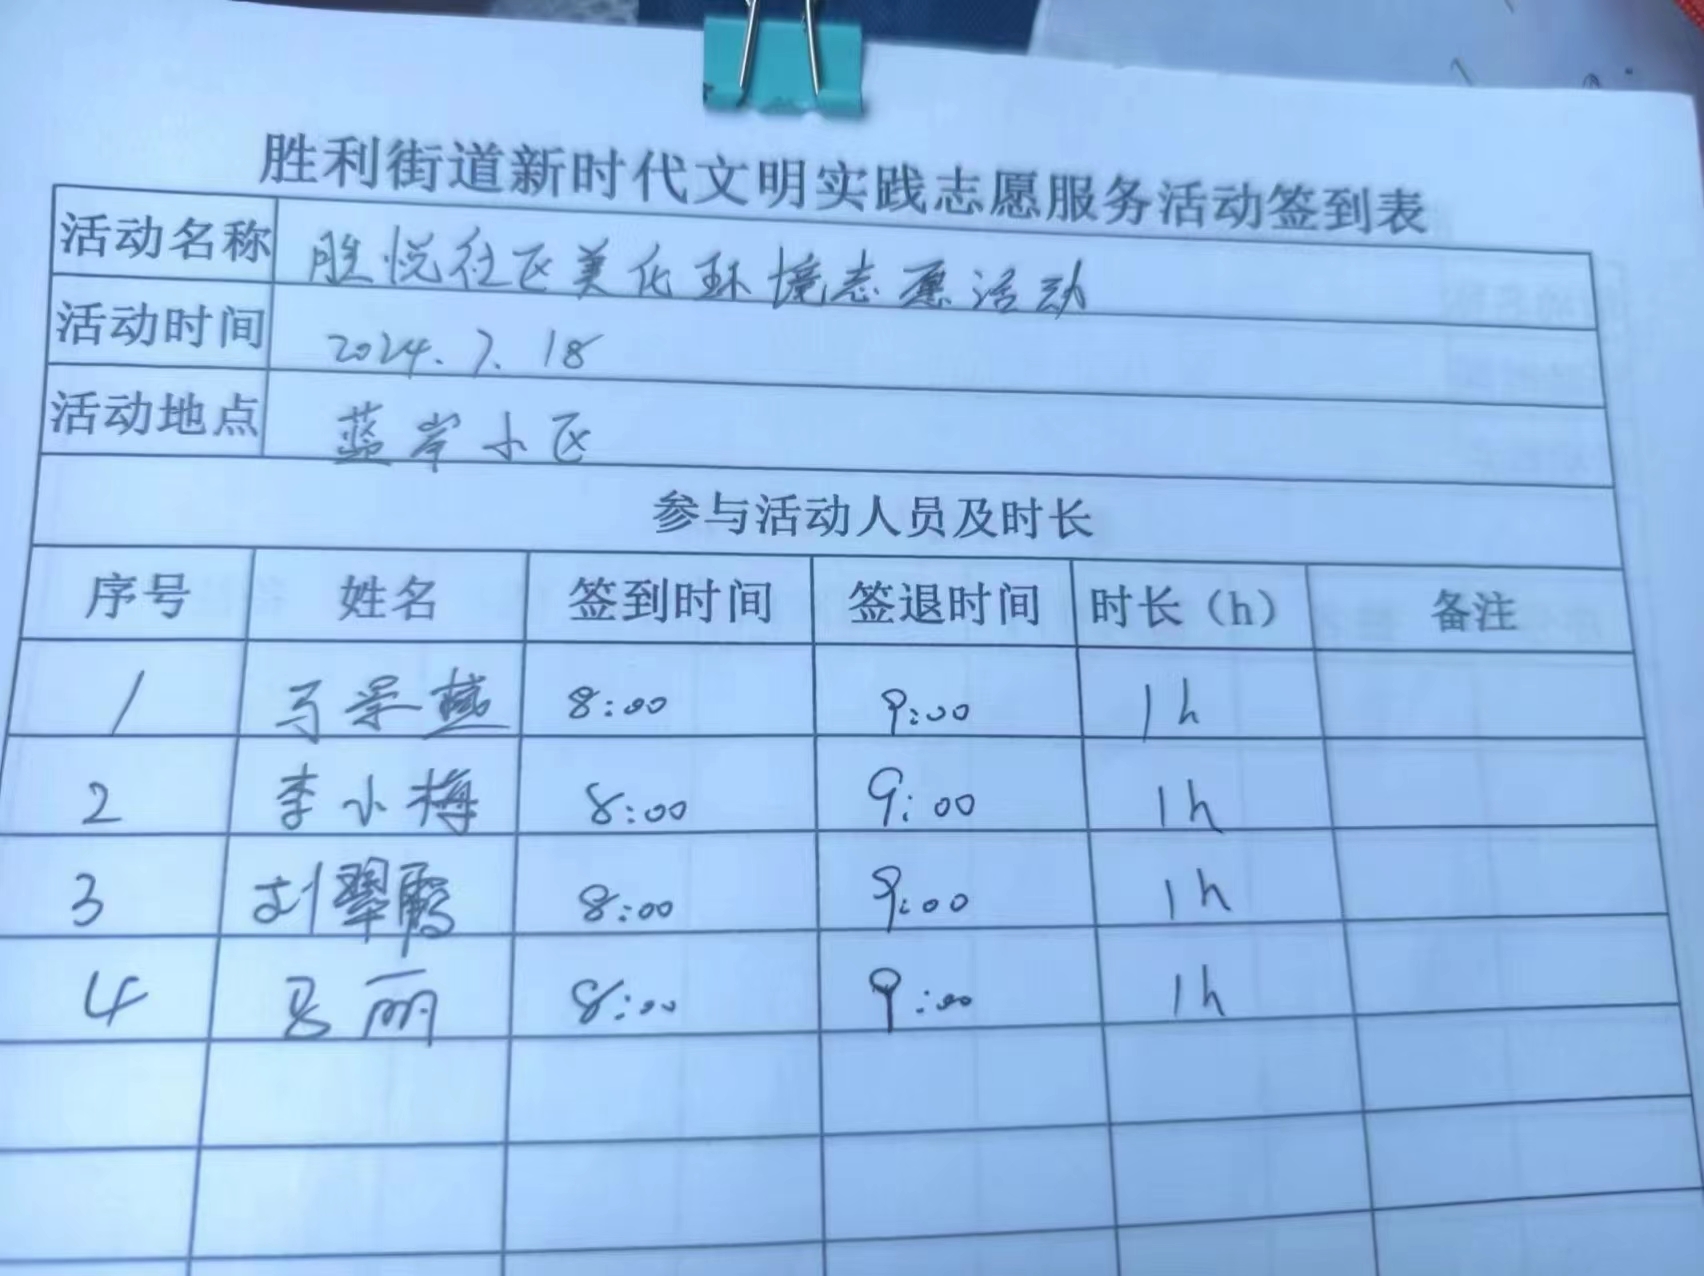 胜利街道新时代文明实践志愿服务活动签到表
活动名称 胜悦社区美化环境志愿活动
活动时间 2024.7.18
活动地点 蓝岸小区
参与活动人员及时长
序号 姓名 签到时间 签退时间 时长（h） 备注
1 8:00 9:00 1h
2 李小梅 8:00 9:00 1h
3 刘翠霞 8:00 9:00 1h
4 马丽 8:00 9:00 1h